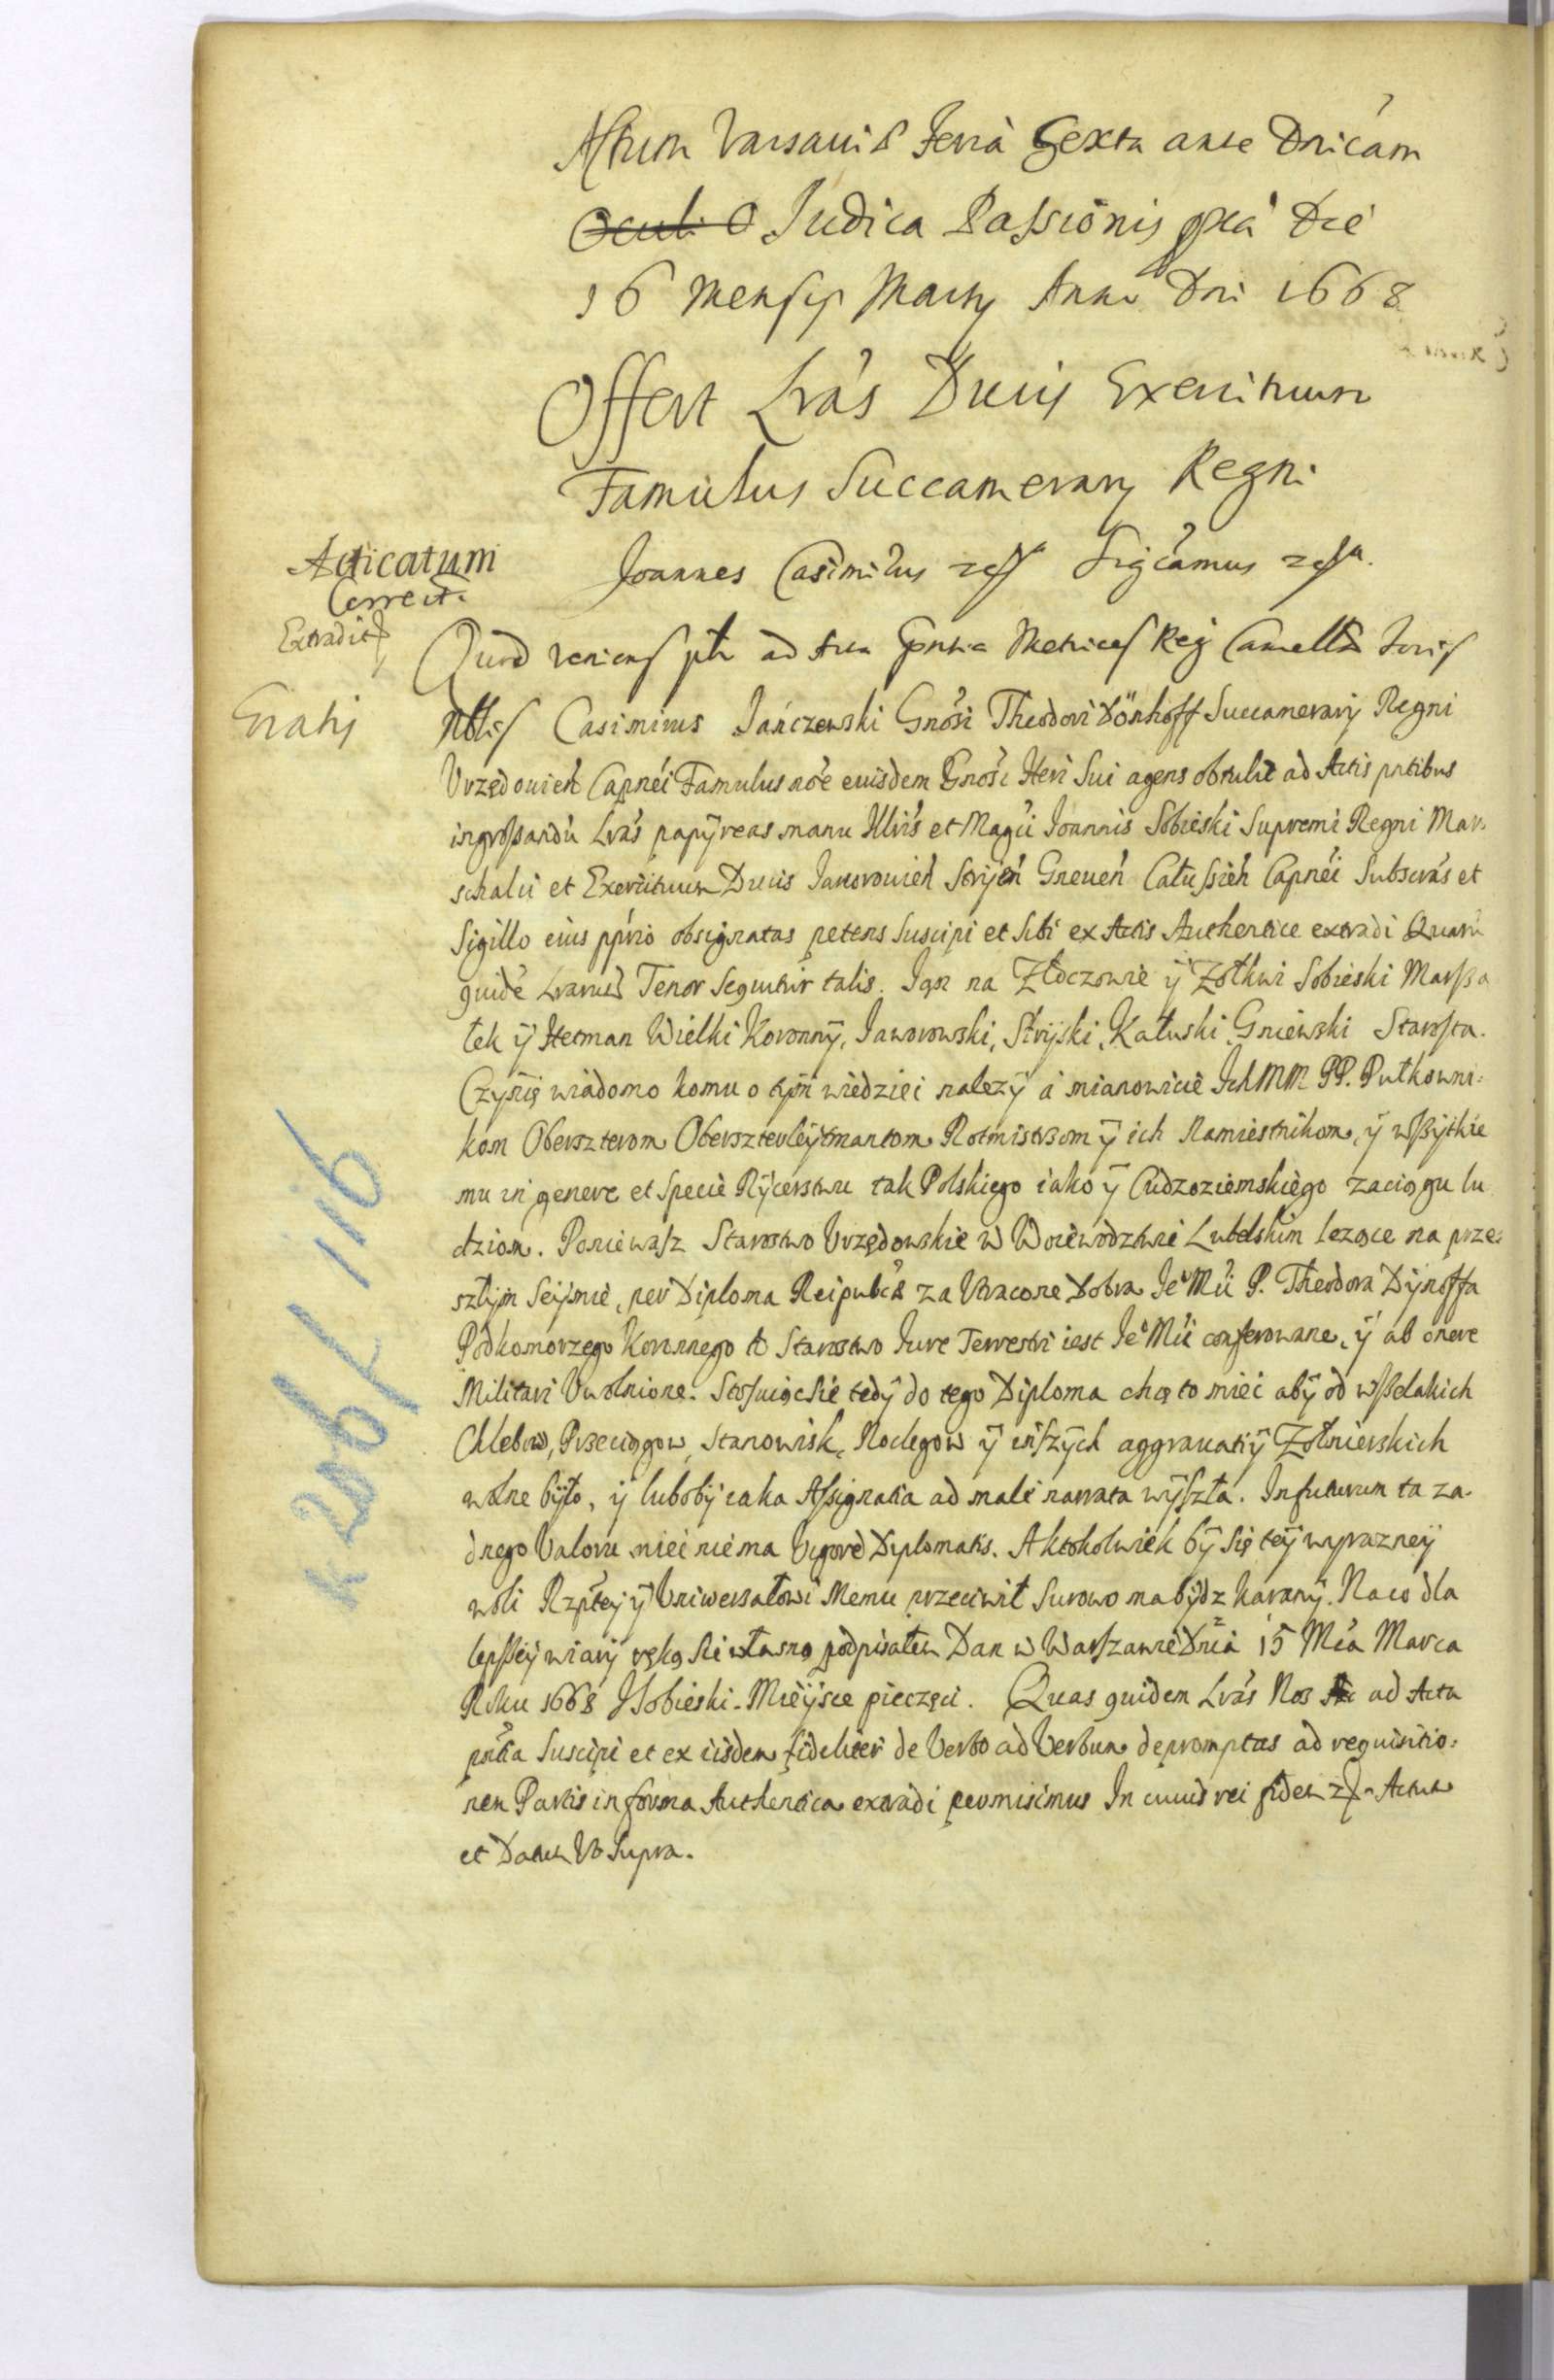 Actum Varsaviæ Feria Sexta ante Dnicam
Oculi O Judica Passionis pxa Die
16 Mensis Martij Anno Dni 1668
Offert Lras Ducis Exercituum
Famulus Succamerarij Regni
Acticatum
Correct.
Joannes Casimirus Sigcamus
Extradit
Quod veniens ad Acta Metrices Reg Cancell
Gratis
Nblis Casimirus Jańczewski Gnosi Theodori Dönhoff Succamerarij Regni
Vrzędovień Capnei Famulus noe euisdem Gnosi Heri Sui agens obtulit ad Actis pntibus
ingrossandu Lras papyreas manu Illris et Magci Joannis Sobieski Supremi Regni Mar-
schalci et Exercituum Ducis Janorovień Stryień Gneueń Całussień Capnei Subscras et
Sigillo eius pprio obsignatas petens Suscipi et Sibi ex Actis Authentice extradi Quaru
quide Lrarum Tenor Sequitur talis. Jan na Złoczowie ÿ Zołkwi Sobieski Marßa
łek ÿ Hetman Wielki Koronnÿ, Jaworowski, Strÿjski, Kałuski, Gniewski Starosta.
Czÿnię wiadomo komu o tÿm wiedziec nalezÿ a mianowicie Ich MM PP. Pułkowni:
kom Oberszterom Oberszterleÿtmantom Rotmistrzom ÿ ich Namiestnikom, ÿ wßÿtkie
mu in genere et Specie Rÿcerstwu tak Polskiego iako ÿ Cudzoziemskiego zaciągu lu
dziom. Poniewasz Starostwo Vrzędowskie w Woiewodztwie Lubelskim lezące na prze:
szłÿm Seÿmie, per Diploma Reipublcæ za Vtracone Dobra Je° Mci P. Theodora Dÿnoffa
Podkomorzego Koronnego to Starostwo Jure Terrestri iest Je° Mci conferowane, ÿ ab onere
Militari Vwolnione. Stosuiąc sie tedÿ do tego Diploma chcę to miec abÿ od wßelakich
Chlebow, Przeciągow, Stanowisk, Noclegow ÿ inszÿch aggrauatiÿ Zołnierskich
wolne bÿło, ÿ lubobÿ iaka Assignatia ad male narrata wÿszła. In futurum ta za-
dnego Valoru miec niema Vigore Diplomatis. A ktokolwiek bÿ się teÿ wyrazneÿ
woli Rzpłteÿ ÿ Vniwersałowi Memu przeciwił Surowo ma bÿdz karanÿ. Na co dla
lepsseÿ wiarÿ ręką sie własną podpisałem Dan w Warszawie Dnia 15 Mca Marca
Roku 1668 JSobieski. Mieÿsce pieczęci. Quas quidem Lras Nos ad Acta
pntia Suscipi et ex iisdem fideliter de Verbo ad Verbum depromptas ad requisitio:
nem Partis in forma Authentica extradi permisimus In cuius rei fidem Actum
et Datum Vt Supra.
k 206 f 116